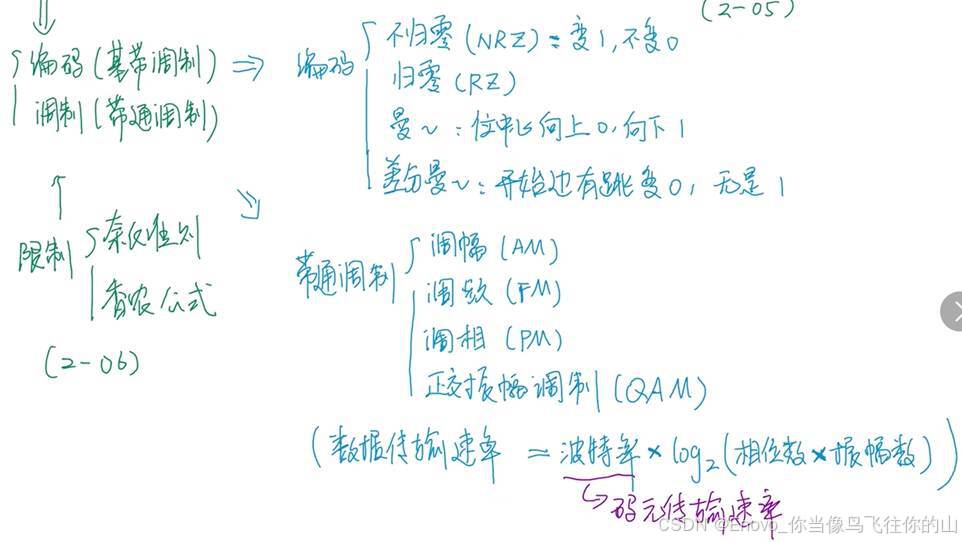 (2-05)
编码(基带调制) ⇒ 编码
调制(带通调制)
不归零(NRZ):变1,不变0
归零(RZ)
曼~:位中心向上0,向下1
差分曼~:开始边有跳变0,无是1
限制
奈氏准则
香农公式
(2-06)
带通调制
调幅(AM)
调频(FM)
调相(PM)
正交振幅调制(QAM)
(数据传输速率 = 波特率×log₂(相位数×振幅数))
↳码元传输速率
CSDN @Enovo_你当像鸟飞往你的山